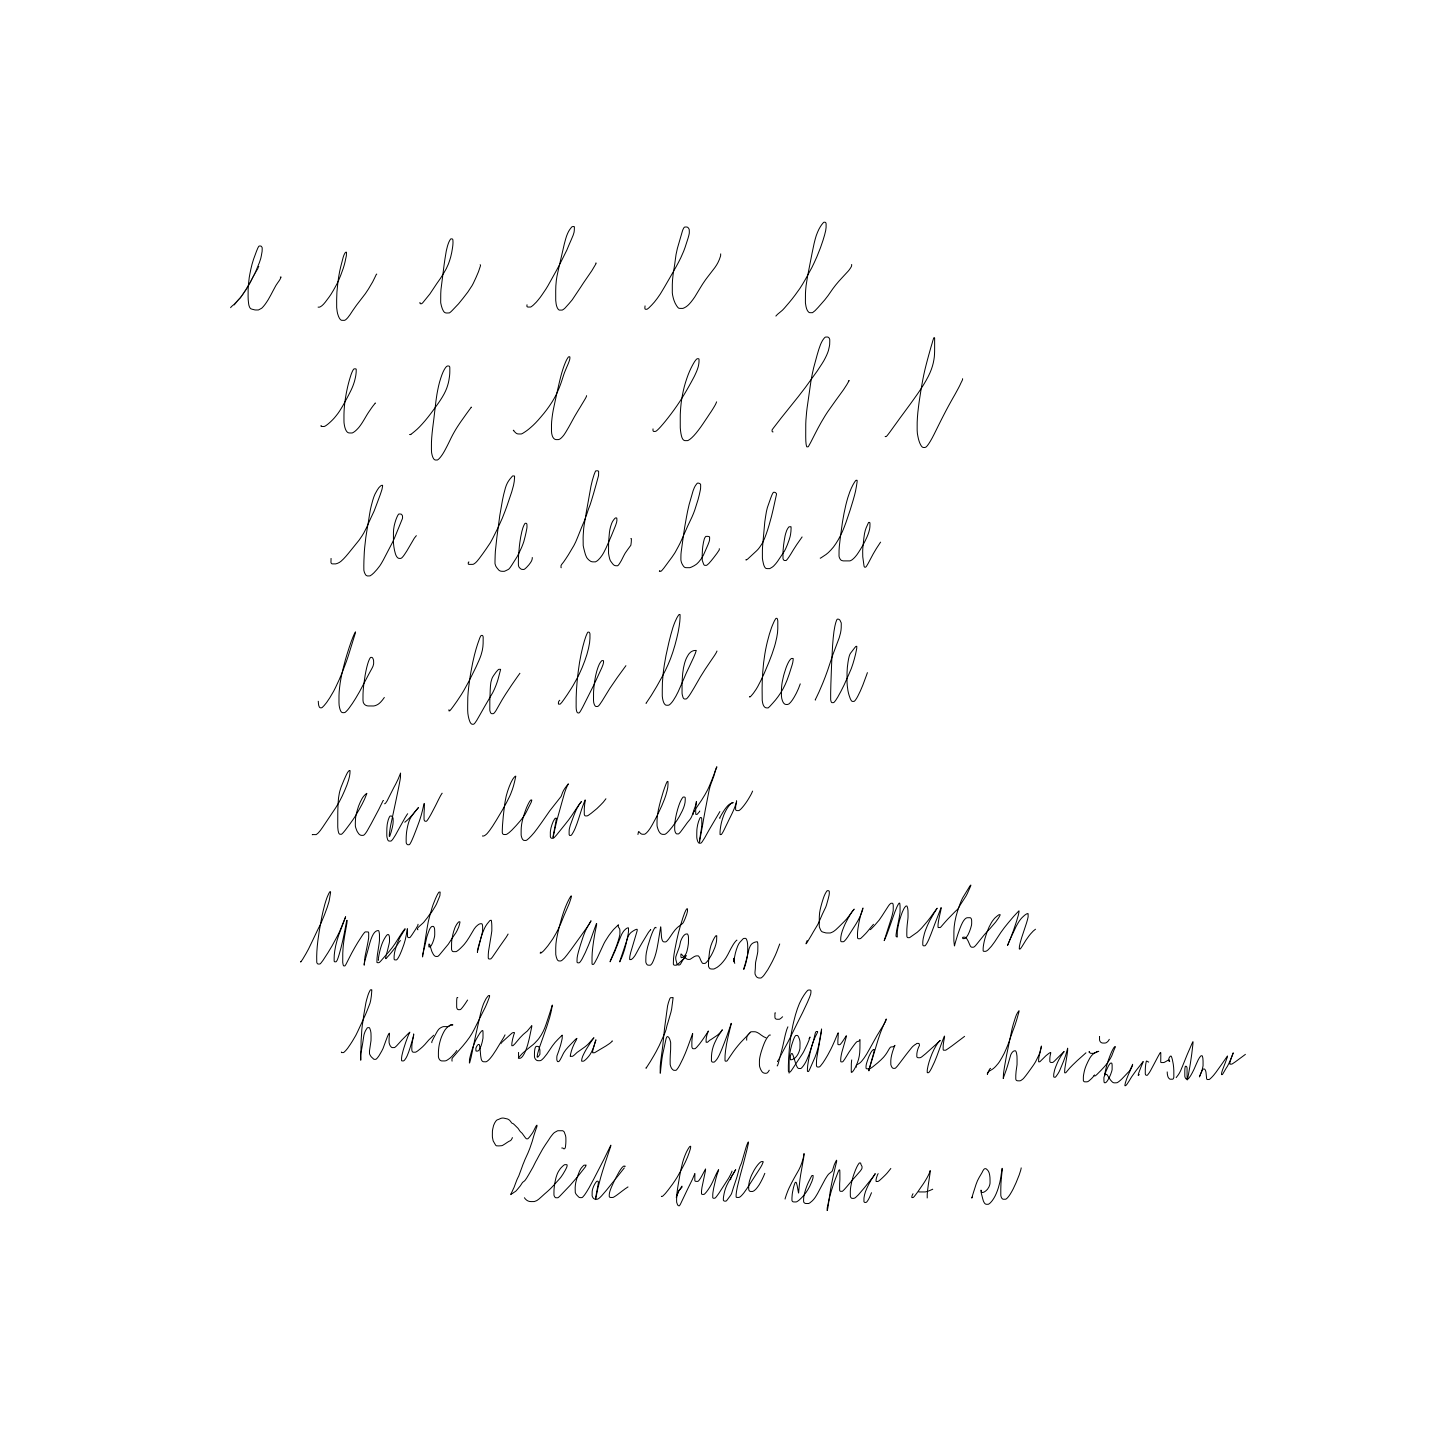 l l l l l l
l l l l l l
le le le le le le
le le le le le le
leto leto leto
lamoken lamoken lamoken
hračkrstvo hračkarstvo hračkarstvo
Vlete bude teplo A